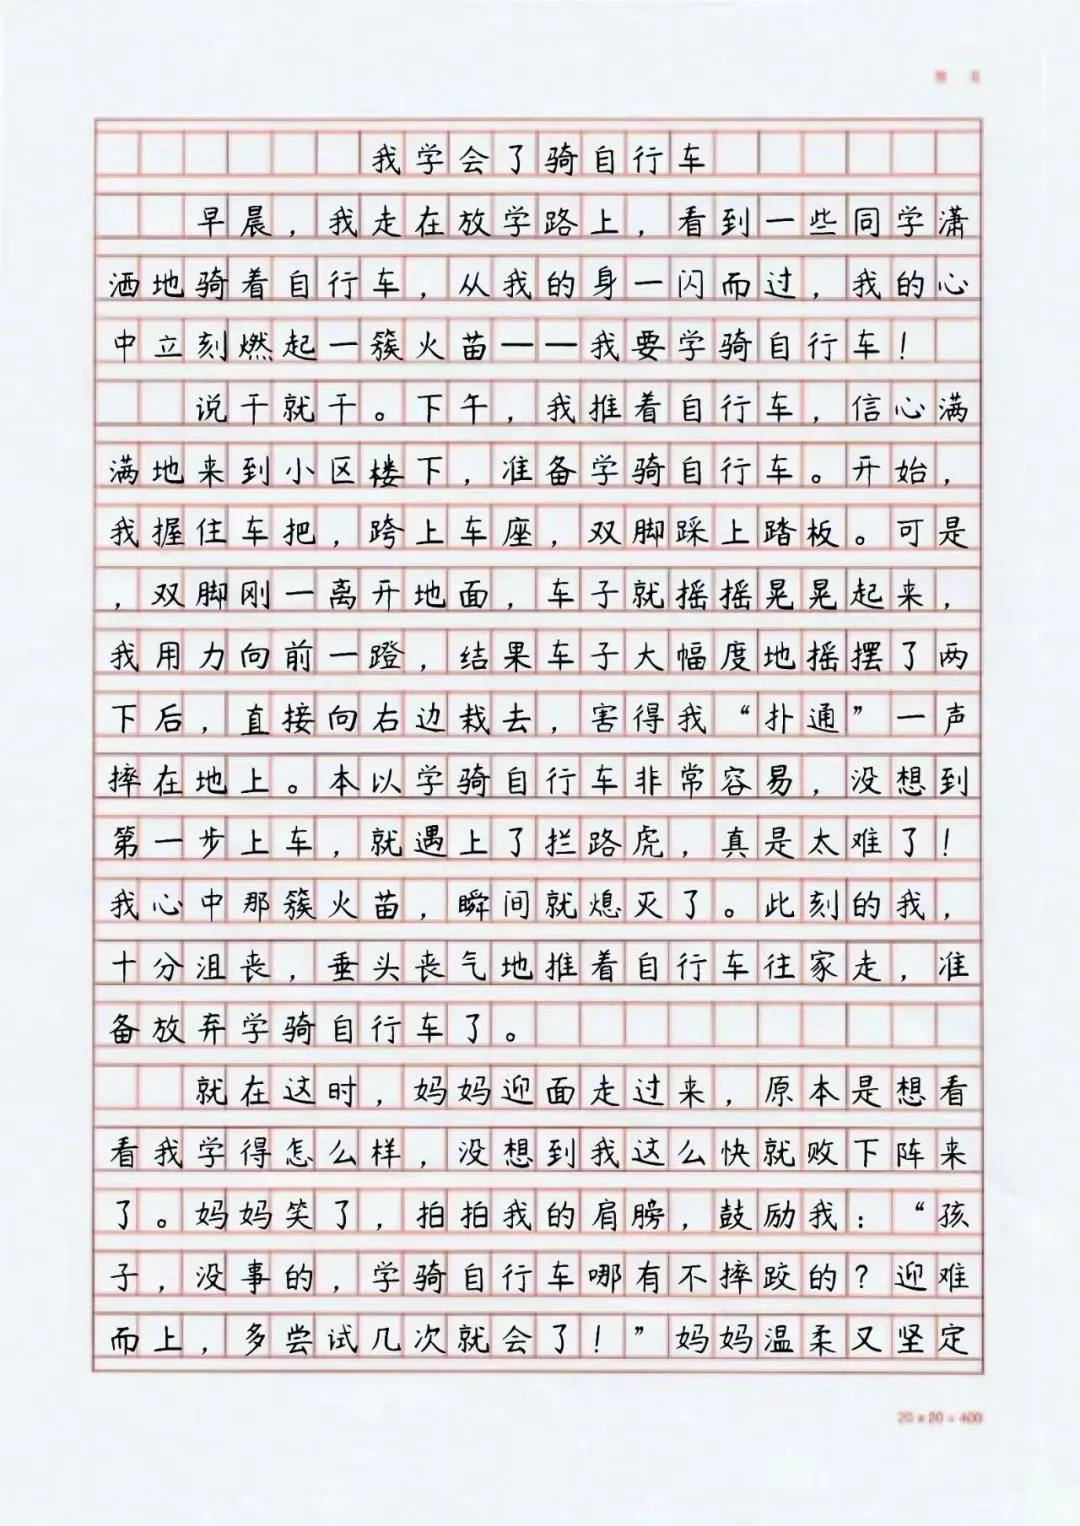 我学会了骑自行车
早晨，我走在放学路上，看到一些同学潇
洒地骑着自行车，从我的身一闪而过，我的心
中立刻燃起一簇火苗——我要学骑自行车！
说干就干。下午，我推着自行车，信心满
满地来到小区楼下，准备学骑自行车。开始，
我握住车把，跨上车座，双脚踩上踏板。可是
，双脚刚一离开地面，车子就摇摇晃晃起来，
我用力向前一蹬，结果车子大幅度地摇摆了两
下后，直接向右边栽去，害得我“扑通”一声
摔在地上。本以学骑自行车非常容易，没想到
第一步上车，就遇上了拦路虎，真是太难了！
我心中那簇火苗，瞬间就熄灭了。此刻的我，
十分沮丧，垂头丧气地推着自行车往家走，准
备放弃学骑自行车了。
就在这时，妈妈迎面走过来，原本是想看
看我学得怎么样，没想到我这么快就败下阵来
了。妈妈笑了，拍拍我的肩膀，鼓励我：“孩
子，没事的，学骑自行车哪有不摔跤的？迎难
而上，多尝试几次就会了！”妈妈温柔又坚定
20×20=400